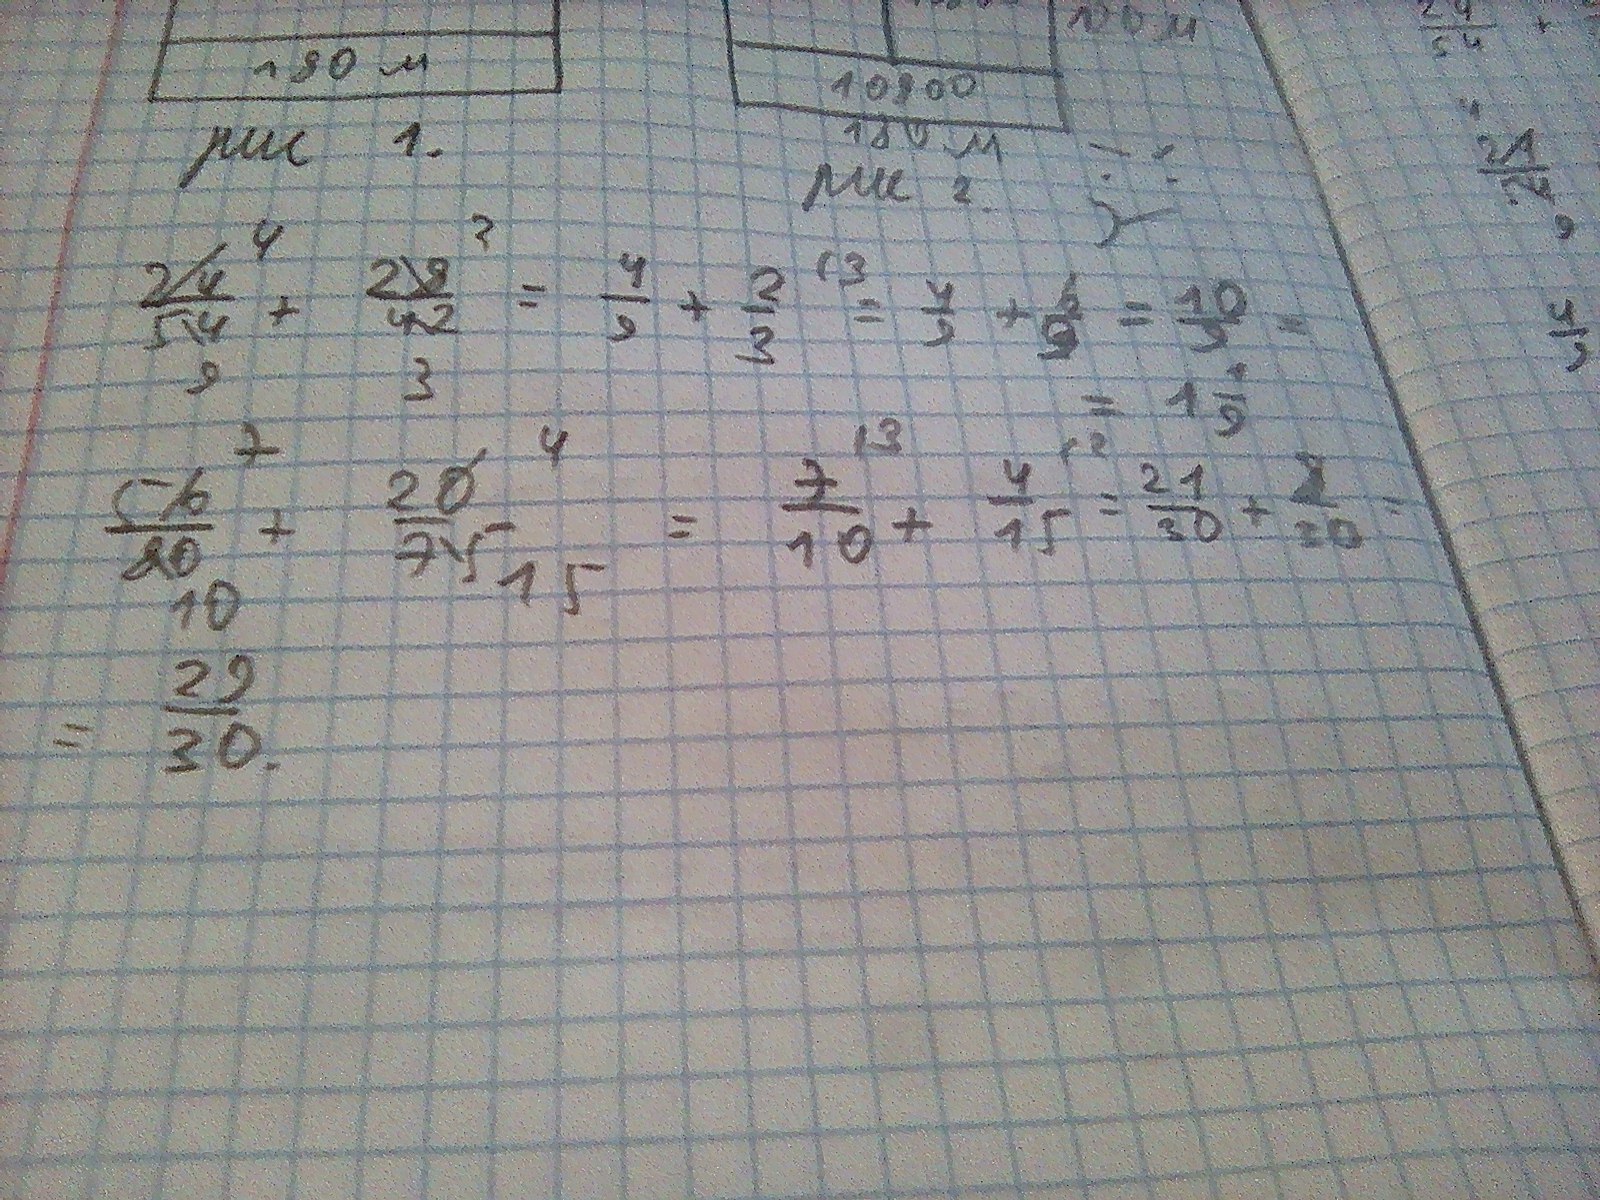 180 м
10800
180 м
рис 1.
рис 2.
24/54 + 28/42 = 4/9 + 2/3 = 4/9 + 6/9 = 10/9 =
= 1 1/9
56/80 + 20/75 = 7/10 + 4/15 = 21/30 + 8/30 =
= 29/30.
24/54 +
24/54
4/9